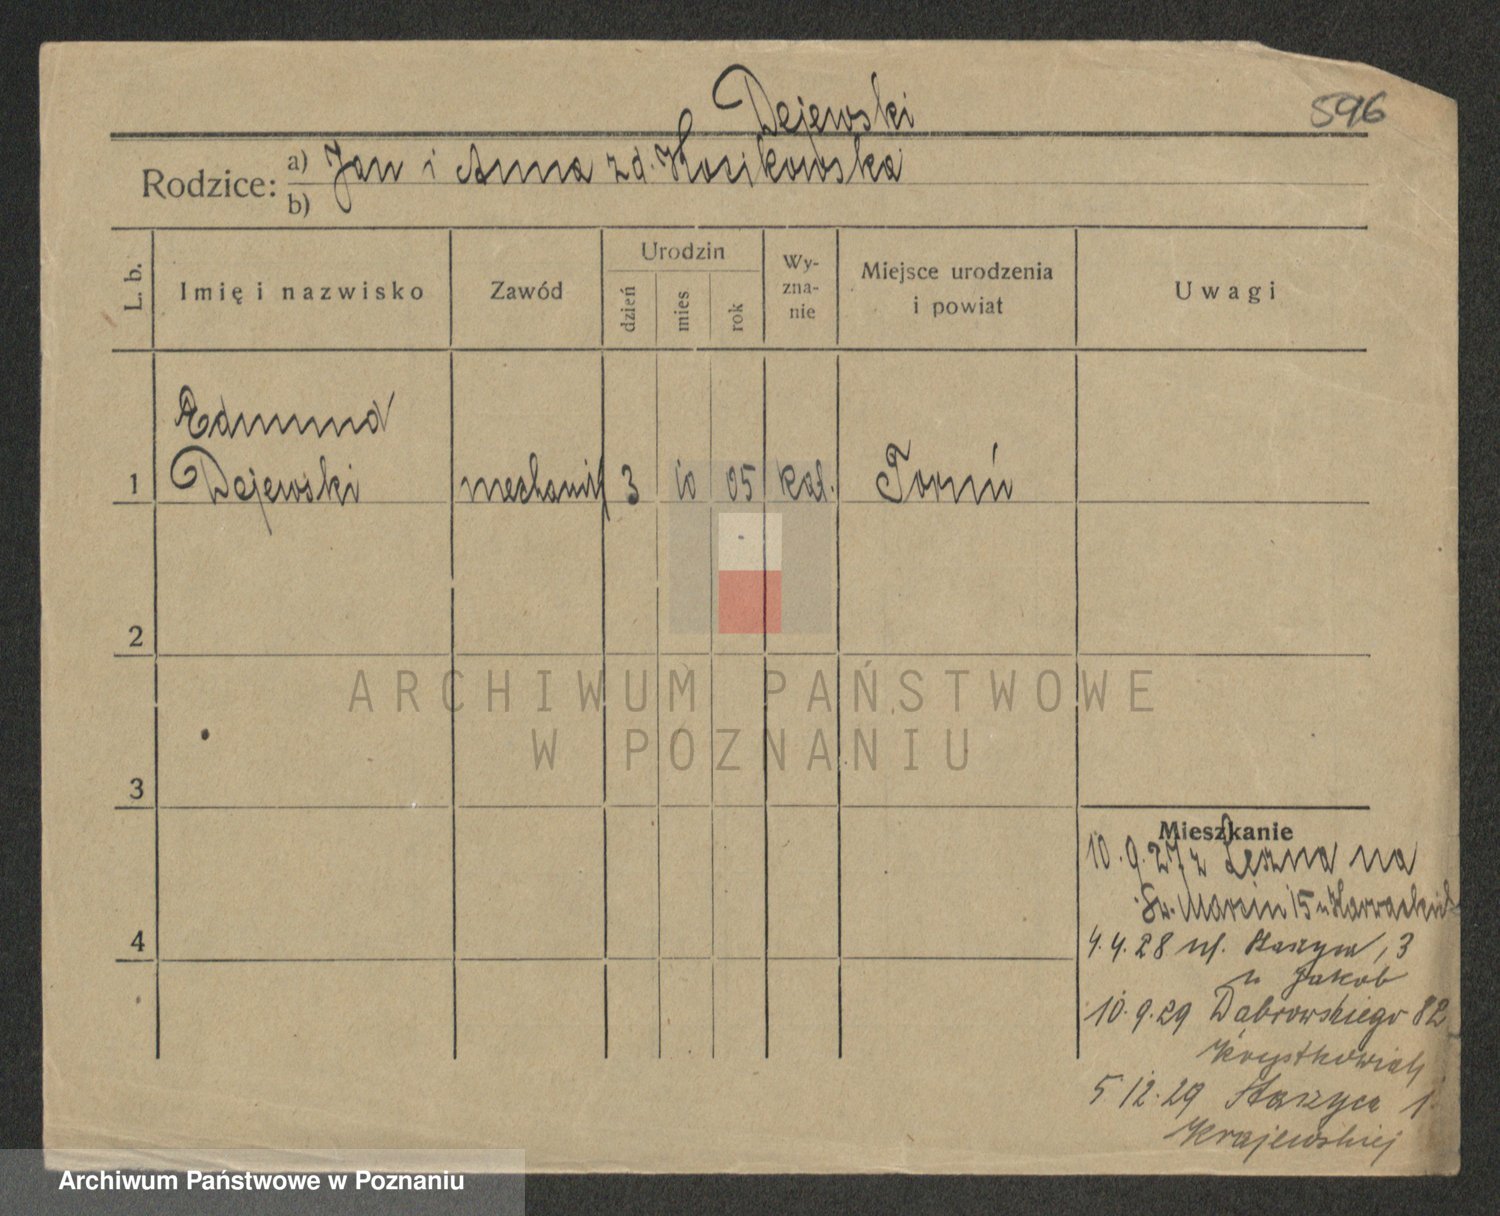 Dejewski
596
Rodzice: a) Jan i Anna z d. Kosikowska
b)
L. b. Imię i nazwisko Zawód Urodzin dzień mies rok Wy-zna-nie Miejsce urodzenia i powiat Uwagi
Edmund
1 Dejewski mechanik 3 10 05 kat. Toruń
2
ARCHIWUM PAŃSTWOWE
W POZNANIU
3
Mieszkanie
10.9.27 z Leszna na
Św. Marcin 15 u
4.4.28 ul. Staszyca, 3
u Jakob
10.9.29 Dąbrowskiego 82
Krystkowiak
5 12.29 Staszyca 1
Krajewskiej
4
Archiwum Państwowe w Poznaniu